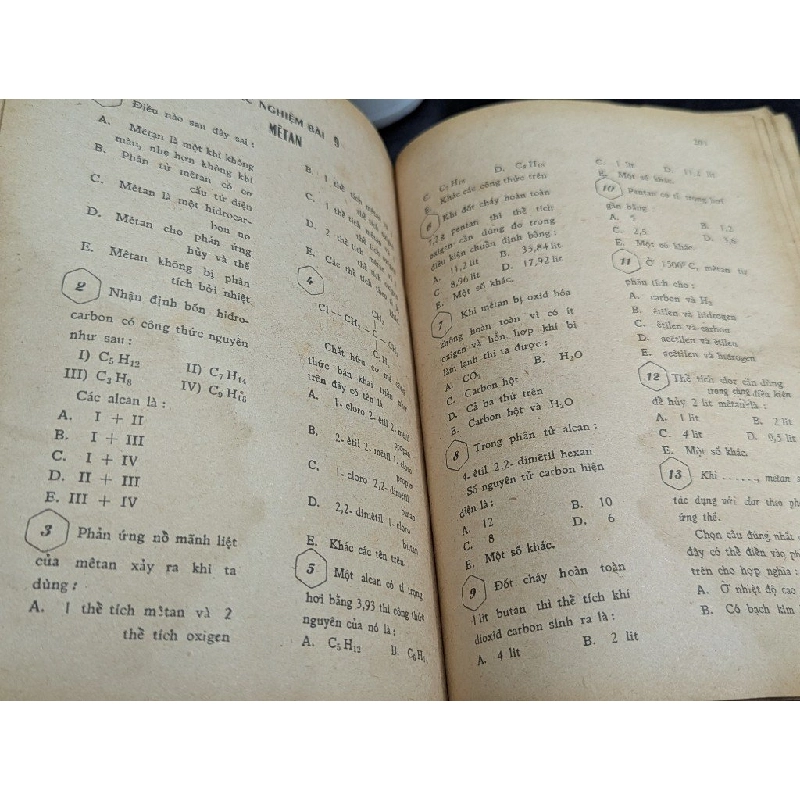 NGHIỆM BÀI 9
MÊTAN
Điều nào sau đây sai :
A. Mêtan là một khí không
màu, nhẹ hơn không khí
B. Phân tử mêtan có cơ
cấu tứ diện
C. Mêtan là một hidrocar-
bon no
D. Mêtan cho phản ứng
hủy và thế
E. Mêtan không bị phân
tích bởi nhiệt
2 Nhận định bốn hidro-
carbon có công thức nguyên
như sau :
I) C5H12 II) C7H14
III) C3H8 IV) C9H18
Các alcan là :
A. I + II
B. I + III
C. I + IV
D. II + III
E. III + IV
3 Phản ứng nổ mãnh liệt
của mêtan xảy ra khi ta
dùng :
A. 1 thể tích mêtan và 2
thể tích oxigen
B. 1 thể tích
C. 1 thể tích
D. 2 thể tích
E. Các thể tích
4
CH3
Chất hữu cơ mà công
thức bán khai triển
trên đây có tên là
A. 1- cloro 2- êtil 2- mêtil
propan
B. 2- êtil 2- mêtil 1- cloro
propan
C. 1- cloro 2,2- dimêtil
butan
D. 2,2- dimêtil 1- cloro
butan
E. Khác các tên trên.
5 Một alcan có tỉ trọng
hơi bằng 3,93 thì công thức
nguyên của nó là :
A. C5H12 B. C6H
C. D.
E. Khác các công thức trên
6 Khi đốt cháy hoàn toàn
7,2g pentan thì thể tích
oxigen cần dùng đo trong
điều kiện chuẩn định bằng :
A. 11,2 lít B. 35,84 lít
C. 8,96 lít D. 17,92 lít
E. Một số khác.
7 Khi mêtan bị oxid hóa
không hoàn toàn vì có ít
oxigen và hỗn hợp khí bị
làm lạnh thì ta được :
A. CO2 B. H2O
C. Carbon hột
D. Cả ba thứ trên
E. Carbon hột và H2O
8 Trong phân tử alcan :
4- êtil 2,2- dimêtil hexan
Số nguyên tử carbon hiện
diện là :
A. 12 B. 10
C. 8 D. 6
E. Một số khác.
9 Đốt cháy hoàn toàn
1 lít butan thì thể tích khí
dioxid carbon sinh ra là :
A. 4 lít B. 2 lít
C. 1 lít D.
E. Một số khác.
10 Pentan có tỉ trọng hơi
gần bằng
A. 5 B. 1,2
C. 2,5 D.
E. Một số khác.
11 Ở 1500°C, mêtan tự
phân tích cho :
A. carbon và H2
B. êtilen và hidrogen
C. êtilen và carbon
D. acêtilen và êtilen
E. acêtilen và hidrogen
12 Thể tích clor cần dùng
trong cùng điều kiện
để hủy 2 lít mêtan là :
A. 1 lít B. 2 lít
C. 4 lít D. 0,5 lít
E. Một số khác.
13 Khi ......, mêtan
tác dụng với clor theo
ứng thế.
Chọn câu đúng nhất
đây có thể điền vào
trên cho hợp nghĩa :
A. Ở nhiệt độ cao
B. Có bạch kim